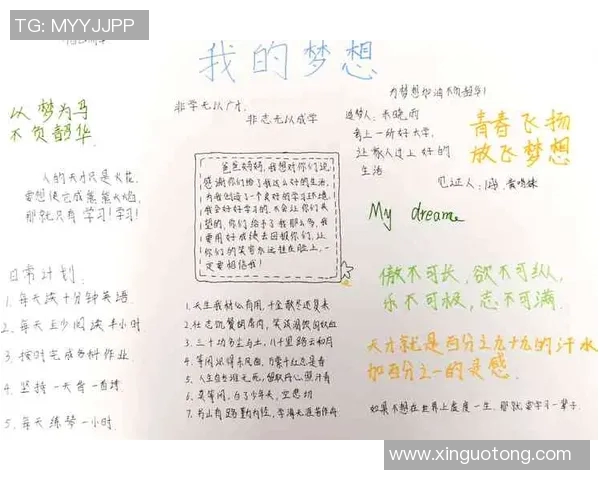 TG: MYYJJPP
我的梦想
以梦为马
不负韶华
人的天才只是火花,
要想使它成熊熊火焰,
那就只有学习!学习!
日常计划
1. 每天读十分钟英语.
2. 每天至少阅读半小时
3. 按时完成各科作业
4. 坚持一天背一首诗
5. 每天练琴一小时.
非学无以广才,
非志无以成学
爸爸妈妈,我想对你们说,
感谢你们给了我这么好的生活,
为我创造了一个良好的学习环境
我会好好学习的,不会让你们失
望的,你们给予了我那么多,我
要用好成绩去回报你们,让
你们的笑容永远挂在脸上,一
定要相信我!
1. 天生我材必有用,千金散尽还复来
2. 壮志饥餐胡虏肉,笑谈渴饮匈奴血
3. 三十功名尘与土,八千里路云和月
4. 等闲识得东风面,万紫千红总是春
5. 人生自古谁无死,留取丹心照汗青
6. 莫等闲,白了少年头,空悲切
7. 书山有路勤为径,学海无涯苦作舟
为梦想加油不负韶华!
追梦人:
考上一所好大学,
让家人过上好的
生活
见证人:
青春飞扬
放飞梦想
My dream
傲不可长,欲不可纵,
乐不可极,志不可满.
天才就是百分之九十九的汗水
加百分之一的灵感.
如果不想在世界上虚度一生,那就要学习一辈子.
www.xinguotong.com